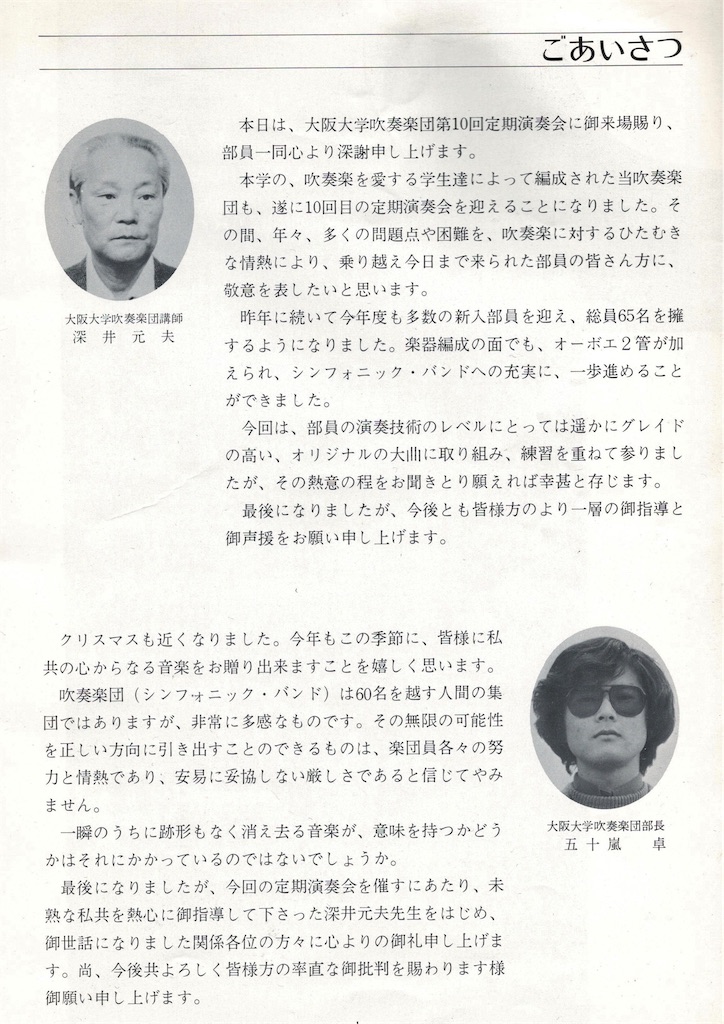 ごあいさつ
本日は、大阪大学吹奏楽団第10回定期演奏会に御来場賜り、
部員一同心より深謝申し上げます。
本学の、吹奏楽を愛する学生達によって編成された当吹奏楽
団も、遂に10回目の定期演奏会を迎えることになりました。そ
の間、年々、多くの問題点や困難を、吹奏楽に対するひたむき
な情熱により、乗り越え今日まで来られた部員の皆さん方に、
敬意を表したいと思います。
昨年に続いて今年度も多数の新入部員を迎え、総員65名を擁
するようになりました。楽器編成の面でも、オーボエ2管が加
えられ、シンフォニック・バンドへの充実に、一歩進めること
ができました。
今回は、部員の演奏技術のレベルにとっては遥かにグレイド
の高い、オリジナルの大曲に取り組み、練習を重ねて参りまし
たが、その熱意の程をお聞きとり願えれば幸甚と存じます。
最後になりましたが、今後とも皆様方のより一層の御指導と
御声援をお願い申し上げます。
大阪大学吹奏楽団講師
深井元夫
クリスマスも近くなりました。今年もこの季節に、皆様に私
共の心からなる音楽をお贈り出来ますことを嬉しく思います。
吹奏楽団（シンフォニック・バンド）は60名を越す人間の集
団ではありますが、非常に多感なものです。その無限の可能性
を正しい方向に引き出すことのできるものは、楽団員各々の努
力と情熱であり、安易に妥協しない厳しさであると信じてやみ
ません。
一瞬のうちに跡形もなく消え去る音楽が、意味を持つかどう
かはそれにかかっているのではないでしょうか。
最後になりましたが、今回の定期演奏会を催すにあたり、未
熟な私共を熱心に御指導して下さった深井元夫先生をはじめ、
御世話になりました関係各位の方々に心よりの御礼申し上げま
す。尚、今後共よろしく皆様方の率直な御批判を賜わります様
御願い申し上げます。
大阪大学吹奏楽団部長
五十嵐 卓